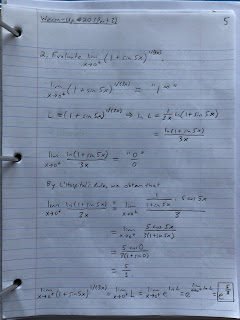 Warm-Up #20 (Part 1)
5
2. Evaluate lim x→0⁺ (1+sin5x)^(1/(3x)).
lim x→0⁺ (1+sin5x)^(1/(3x)) = "1^∞"
L = (1+sin5x)^(1/(3x)) ⇒ ln L = 1/(3x) ln(1+sin5x)
= ln(1+sin5x)/(3x)
lim x→0⁺ ln(1+sin5x)/(3x) = "0/0"
By L'Hôpital's Rule, we obtain that
lim x→0⁺ ln(1+sin5x)/(3x) = lim x→0⁺ (1/(1+sin5x) · 5cos5x)/3
= lim x→0⁺ 5cos5x/(3(1+sin5x))
= 5cos0/(3(1+sin0))
= 5/3
lim x→0⁺ (1+sin5x)^(1/(3x)) = lim x→0⁺ L = lim x→0⁺ e^(ln L) = e^(lim x→0⁺ ln L) = e^(5/3)